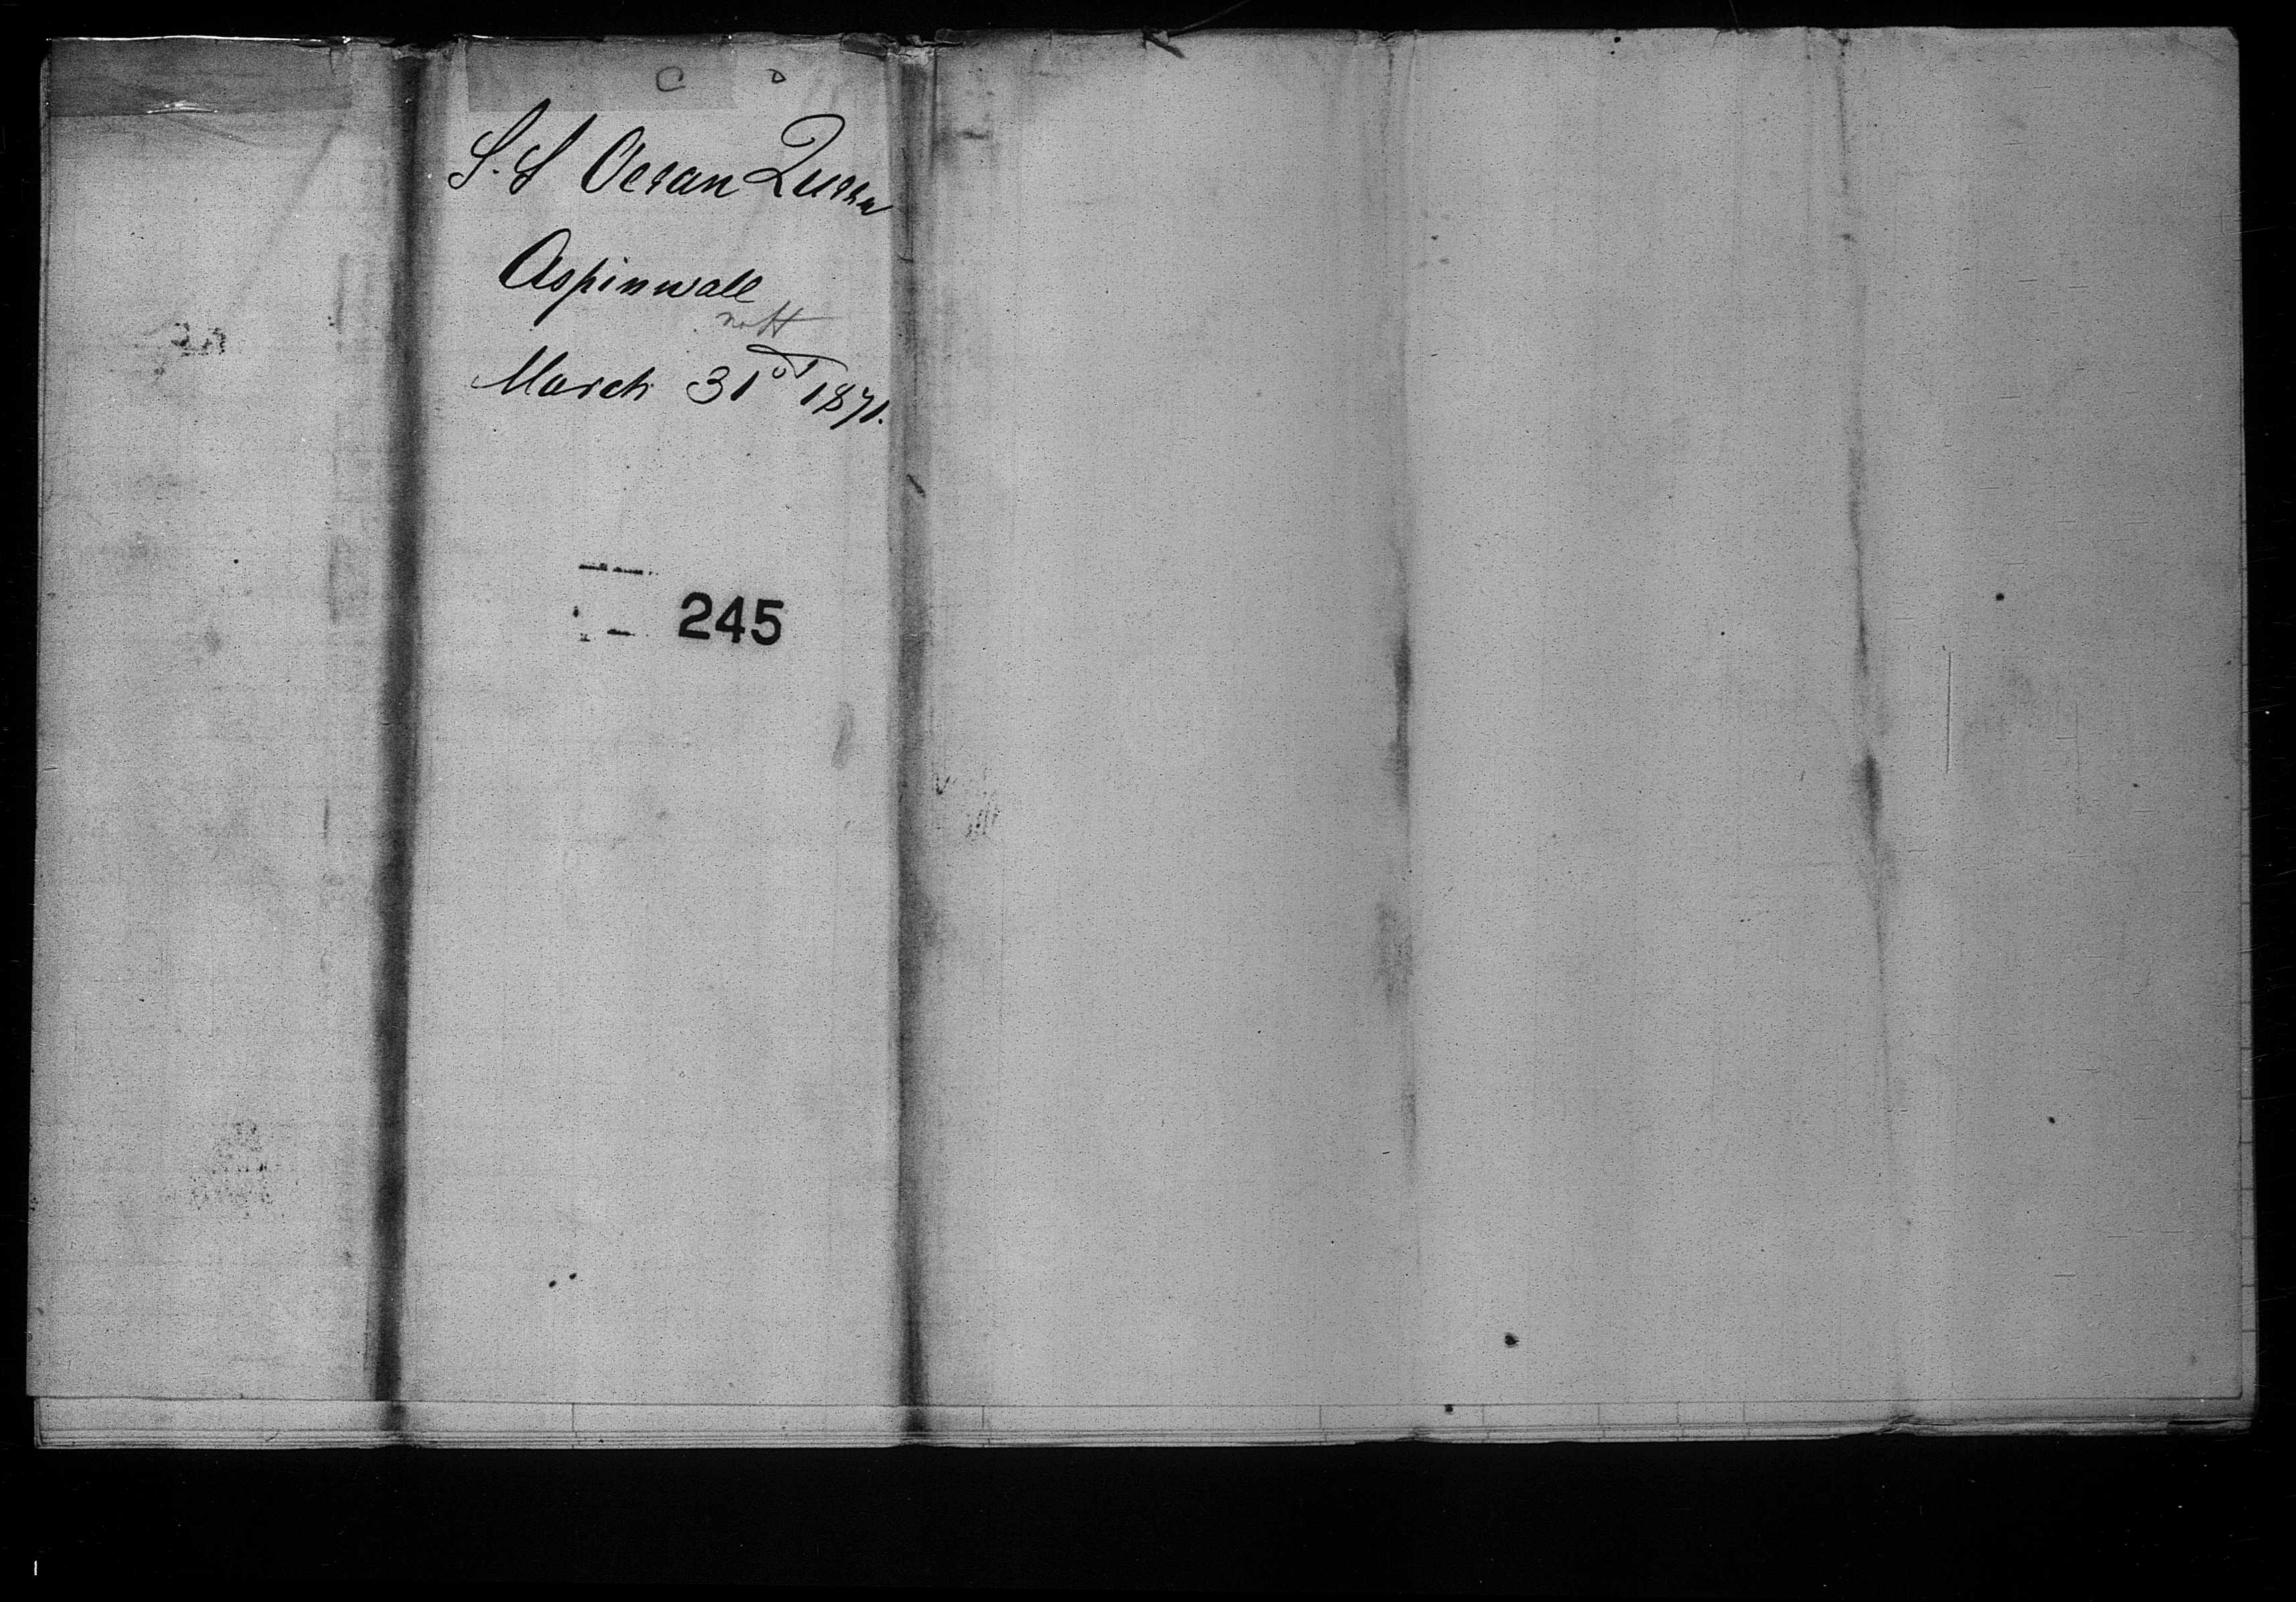 S.S Ocean Queen
Aspinwall
March 31st 1871.
245